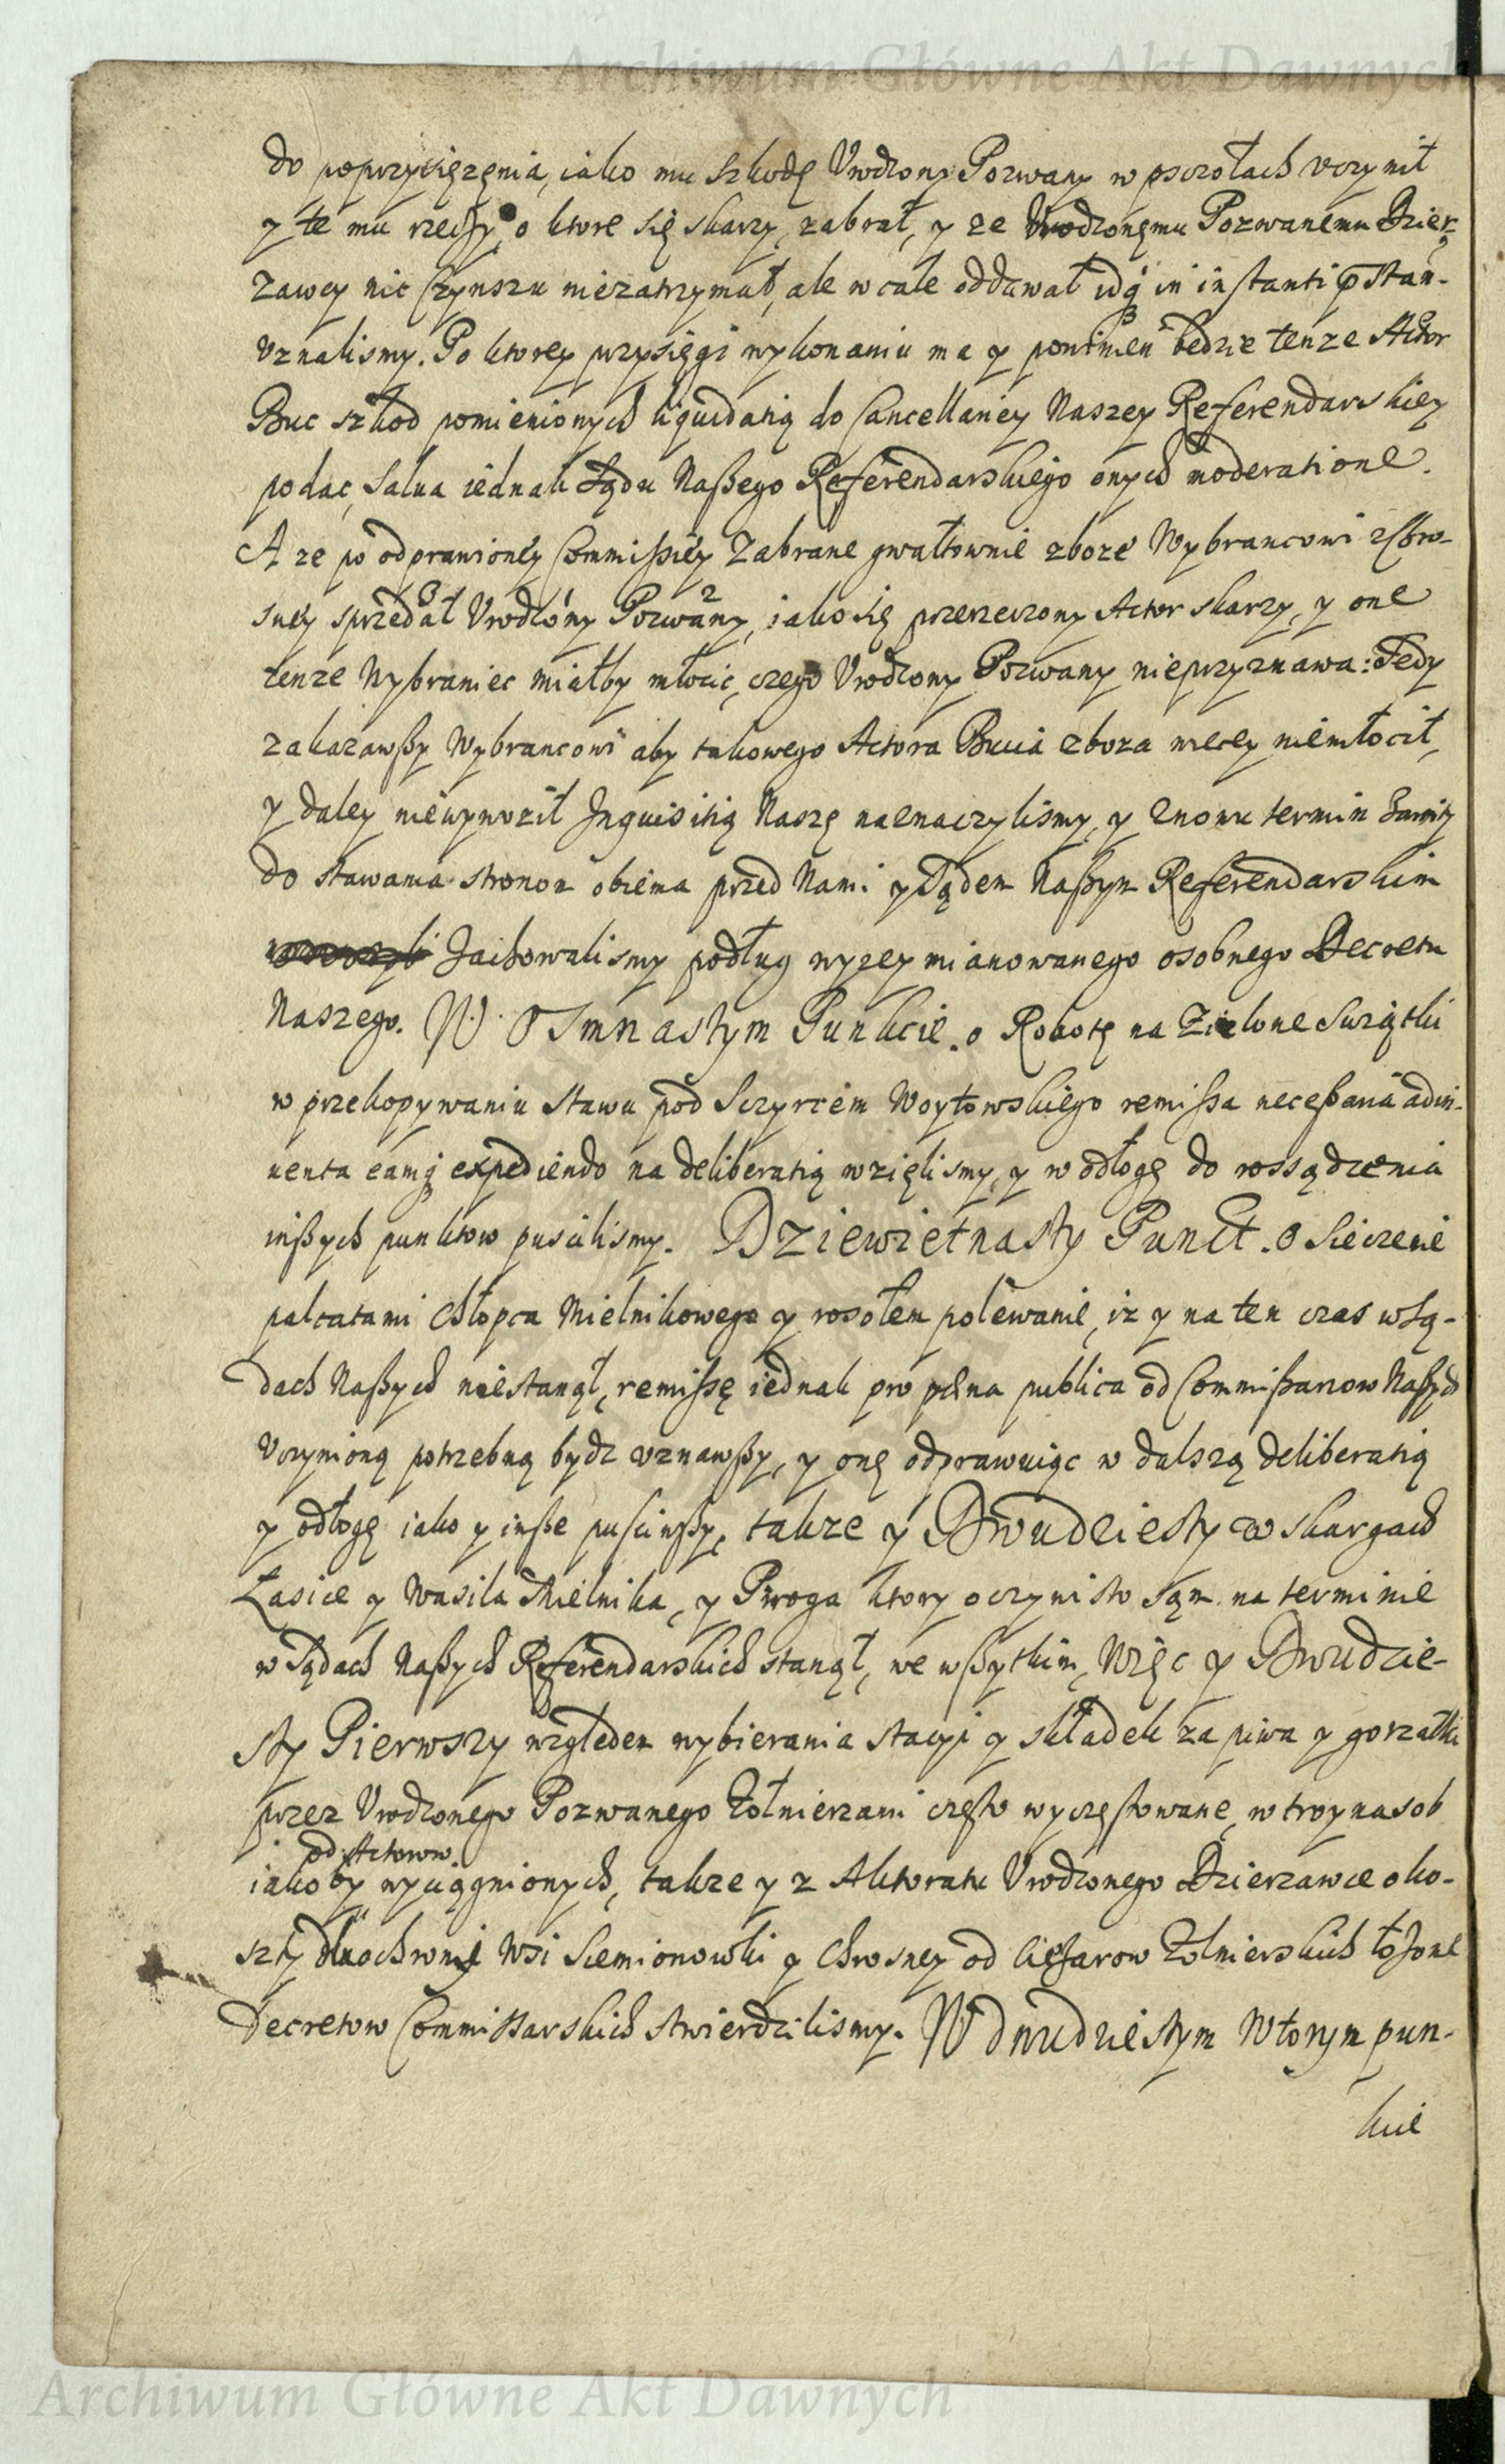 Archiwum Główne Akt Dawnych
do poprzysięzęnia, iako mu szkodę Vrodzony Pozwany w pszczołach vczynił
y te mu rzeczy, o ktore się skarzy, zabrał, y ze Vrodzonęmu Pozwanemu Dzier-
zawcy nic Czynszu niezatrzymał, ale wcale oddawał in instanti
vznalismy. Po ktorey przysięgi wykonaniu ma y powinien będzie tenze Actor
Buc szkod pomienionych liquidatią do Cancellariey Naszey Referendarskiey
podac, salua iednak Sądu Naßego Referendarskiego onych moderatione.
A ze po odprawioney Commißiey Zabrane gwałtownie zboze Wybrancowi z Chro-
sney sprzedał Vrodzony Pozwany, iako się przerzeczony Actor skarzy, y one
tenze Wybraniec miałby młocic, czego Vrodzony Pozwany nieprzyznawa: Tedy
zakazawßy Wybrancowi aby takowego Actora Bucia zboza więcey niemłocił,
y daley niewywoził Inquisitią Naszę naznaczylismy, y znowu termin
do stawania stronom obiema przed Nami y Sądem Naßym Referendarskim
Zachowalismy podług wyzey mianowanego osobnego Decretu
Naszego. W Osmnastym Punkcie. o Robotę na Zielone Swiątki
w przekopywaniu stawu pod Sczyrcem Woytowskiego remißa neceßaria adin-
uenta eamq expediendo na deliberatią wzięlismy, y w odłogę do rossądzenia
inßych punktow puscilismy. Dziewietnasty Punct. o sieczenie
palcatami Chłopca Mielnikowego y rosołem polewanie, iz y na ten czas w Są-
dach Naßych niestanął, remißę iednak pro pœna publica od Commißarzow Naßych
vczynioną potrzebną bydz vznawßy, y onę odprawuiąc w dalszą deliberatią
y odłogę iako y inße pusciwßy, takze y Dwudziesty w skargach
Łasice y Wasila Mielnika, y Piroga ktory oczywisto sąm na terminie
w Sądach Naßych Referendarskich stanął, we wßytkim, Więc y Dwudzie-
sty Pierwszy względem wybierania stacyi y składek za piwa y gorzałki
przez Vrodzonego Pozwanego Zołnierzami często wyczęstowane, w troynasob
od Actorow
iakoby wyciągnionych, takze y z Aktoratu Vrodzonego Dzierzawce o ko-
szty dla ochrony Wsi Siemionowki y Chrosney od Cięzarow Zołnierskich łozone
Decretow Commissarskich stwierdzilismy. W dwudziestym Wtorym pun-
kcie
Archiwum Główne Akt Dawnych